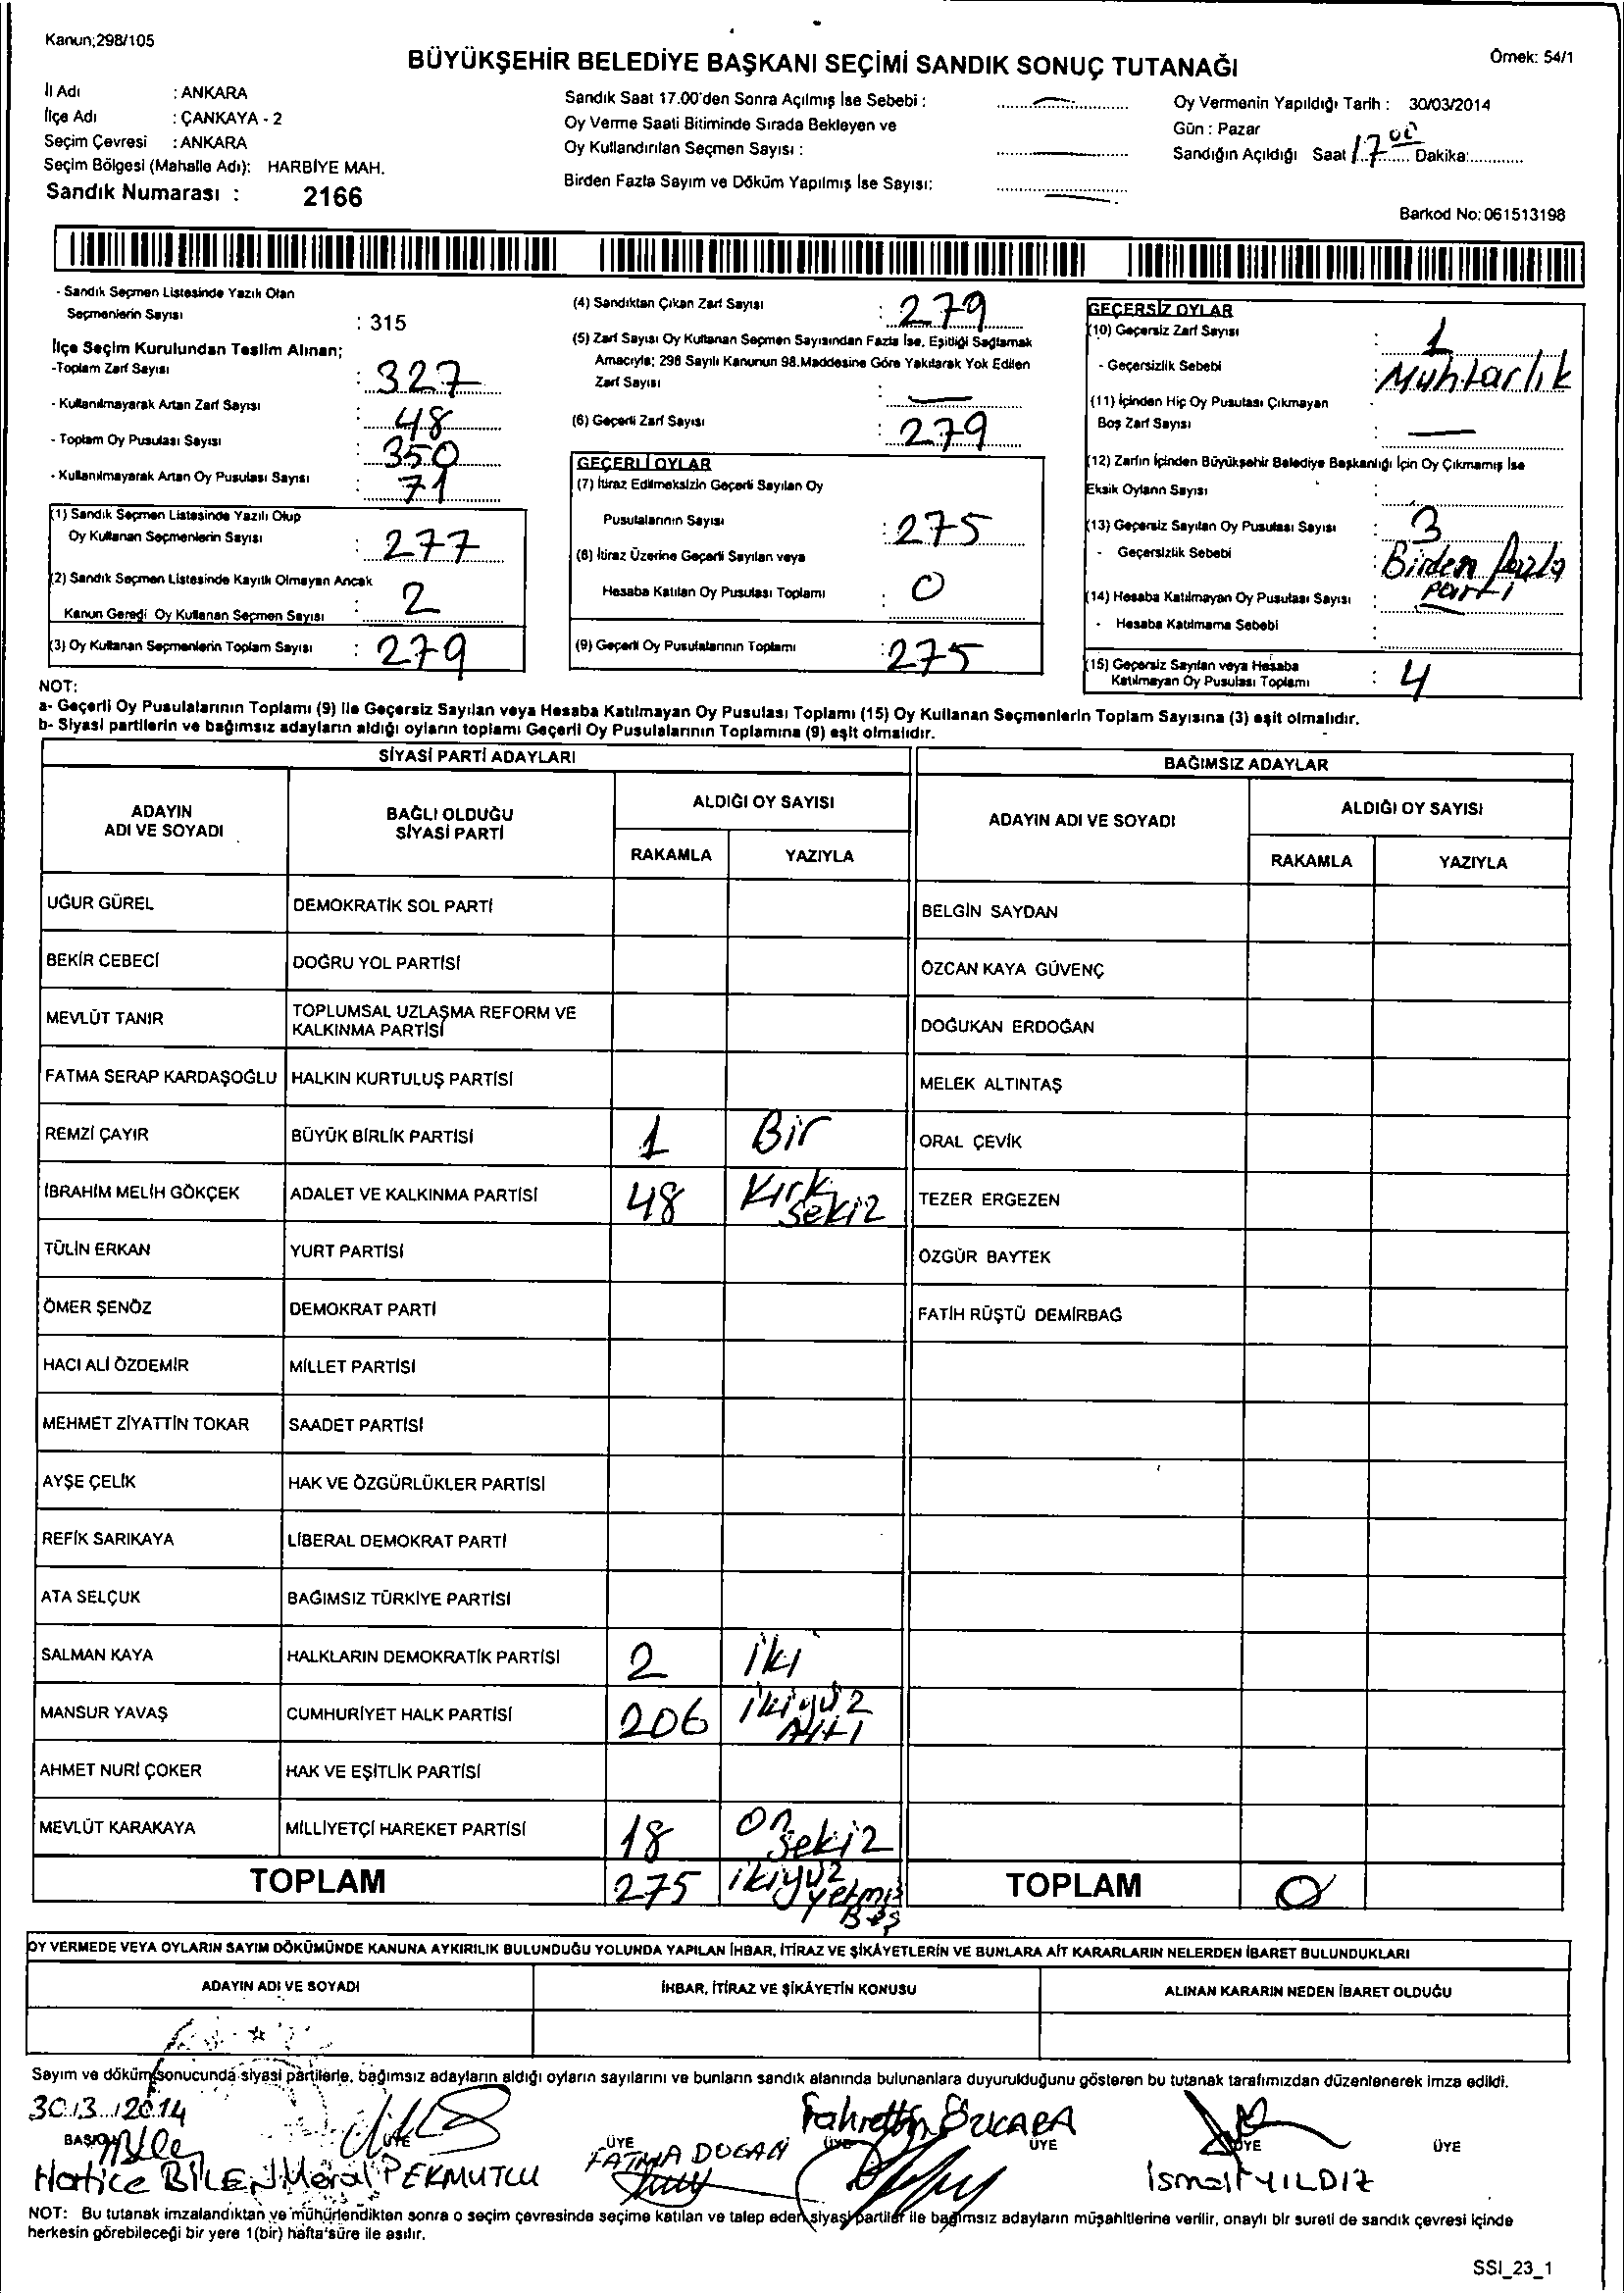 Kanun;298/105
BÜYÜKŞEHİR BELEDİYE BAŞKANI SEÇİMİ SANDIK SONUÇ TUTANAĞI
Örnek: 54/1
İl Adı : ANKARA
İlçe Adı : ÇANKAYA - 2
Seçim Çevresi : ANKARA
Seçim Bölgesi (Mahalle Adı): HARBİYE MAH.
Sandık Numarası : 2166
Sandık Saat 17.00'den Sonra Açılmış İse Sebebi :
Oy Verme Saati Bitiminde Sırada Bekleyen ve
Oy Kullandırılan Seçmen Sayısı :
Birden Fazla Sayım ve Döküm Yapılmış İse Sayısı:
Oy Vermenin Yapıldığı Tarih : 30/03/2014
Gün : Pazar
Sandığın Açıldığı Saat 17 00 Dakika:
Barkod No: 061513198
- Sandık Seçmen Listesinde Yazılı Olan
Seçmenlerin Sayısı : 315
İlçe Seçim Kurulundan Teslim Alınan;
-Toplam Zarf Sayısı : 327
- Kullanılmayarak Artan Zarf Sayısı : 48
- Toplam Oy Pusulası Sayısı : 350
- Kullanılmayarak Artan Oy Pusulası Sayısı : 71
(1) Sandık Seçmen Listesinde Yazılı Olup
Oy Kullanan Seçmenlerin Sayısı : 277
(2) Sandık Seçmen Listesinde Kayıtlı Olmayan Ancak
Kanun Geredi Oy Kullanan Seçmen Sayısı : 2
(3) Oy Kullanan Seçmenlerin Toplam Sayısı : 279
(4) Sandıktan Çıkan Zarf Sayısı : 279
(5) Zarf Sayısı Oy Kullanan Seçmen Sayısından Fazla İse, Eşitliği Sağlamak
Amacıyla; 298 Sayılı Kanunun 98.Maddesine Göre Yakılarak Yok Edilen
Zarf Sayısı : —
(6) Geçerli Zarf Sayısı : 279
GEÇERLİ OYLAR
(7) İtiraz Edilmeksizin Geçerli Sayılan Oy
Pusulalarının Sayısı : 275
(8) İtiraz Üzerine Geçerli Sayılan veya
Hesaba Katılan Oy Pusulası Toplamı : 0
(9) Geçerli Oy Pusulalarının Toplamı : 275
GEÇERSİZ OYLAR
(10) Geçersiz Zarf Sayısı : 1
- Geçersizlik Sebebi : Muhtarlık
(11) İçinden Hiç Oy Pusulası Çıkmayan
Boş Zarf Sayısı : —
(12) Zarfın İçinden Büyükşehir Belediye Başkanlığı İçin Oy Çıkmamış İse
Eksik Oyların Sayısı :
(13) Geçersiz Sayılan Oy Pusulası Sayısı : 3
- Geçersizlik Sebebi : Birden fazla
parti
(14) Hesaba Katılmayan Oy Pusulası Sayısı : —
- Hesaba Katılmama Sebebi :
(15) Geçersiz Sayılan veya Hesaba
Katılmayan Oy Pusulası Toplamı : 4
NOT:
a- Geçerli Oy Pusulalarının Toplamı (9) ile Geçersiz Sayılan veya Hesaba Katılmayan Oy Pusulası Toplamı (15) Oy Kullanan Seçmenlerin Toplam Sayısına (3) eşit olmalıdır.
b- Siyasi partilerin ve bağımsız adayların aldığı oyların toplamı Geçerli Oy Pusulalarının Toplamına (9) eşit olmalıdır.
SİYASİ PARTİ ADAYLARI
BAĞIMSIZ ADAYLAR
ADAYIN ADI VE SOYADI
BAĞLI OLDUĞU SİYASİ PARTİ
ALDIĞI OY SAYISI
RAKAMLA YAZIYLA
ADAYIN ADI VE SOYADI
ALDIĞI OY SAYISI
RAKAMLA YAZIYLA
UĞUR GÜREL DEMOKRATİK SOL PARTİ BELGİN SAYDAN
BEKİR CEBECİ DOĞRU YOL PARTİSİ ÖZCAN KAYA GÜVENÇ
MEVLÜT TANIR TOPLUMSAL UZLAŞMA REFORM VE KALKINMA PARTİSİ DOĞUKAN ERDOĞAN
FATMA SERAP KARDAŞOĞLU HALKIN KURTULUŞ PARTİSİ MELEK ALTINTAŞ
REMZİ ÇAYIR BÜYÜK BİRLİK PARTİSİ 1 Bir ORAL ÇEVİK
İBRAHİM MELİH GÖKÇEK ADALET VE KALKINMA PARTİSİ 48 Kırk Sekiz TEZER ERGEZEN
TÜLİN ERKAN YURT PARTİSİ ÖZGÜR BAYTEK
ÖMER ŞENÖZ DEMOKRAT PARTİ FATİH RÜŞTÜ DEMİRBAĞ
HACI ALİ ÖZDEMİR MİLLET PARTİSİ
MEHMET ZİYATTİN TOKAR SAADET PARTİSİ
AYŞE ÇELİK HAK VE ÖZGÜRLÜKLER PARTİSİ
REFİK SARIKAYA LİBERAL DEMOKRAT PARTİ
ATA SELÇUK BAĞIMSIZ TÜRKİYE PARTİSİ
SALMAN KAYA HALKLARIN DEMOKRATİK PARTİSİ 2 iki
MANSUR YAVAŞ CUMHURİYET HALK PARTİSİ 206 ikiyüz Altı
AHMET NURİ ÇOKER HAK VE EŞİTLİK PARTİSİ
MEVLÜT KARAKAYA MİLLİYETÇİ HAREKET PARTİSİ 18 on Sekiz
TOPLAM 275 ikiyüz yetmiş Beş TOPLAM 0
OY VERMEDE VEYA OYLARIN SAYIM DÖKÜMÜNDE KANUNA AYKIRILIK BULUNDUĞU YOLUNDA YAPILAN İHBAR, İTİRAZ VE ŞİKÂYETLERİN VE BUNLARA AİT KARARLARIN NELERDEN İBARET BULUNDUKLARI
ADAYIN ADI VE SOYADI İHBAR, İTİRAZ VE ŞİKÂYETİN KONUSU ALINAN KARARIN NEDEN İBARET OLDUĞU
Sayım ve döküm sonucunda siyasi partilerle, bağımsız adayların aldığı oyların sayılarını ve bunların sandık alanında bulunanlara duyurulduğunu gösteren bu tutanak tarafımızdan düzenlenerek imza edildi.
30/3/2014
Fahrettin ÖZKARA
ÜYE ÜYE ÜYE ÜYE ÜYE ÜYE
FATMA DOGAN
Hatice BİLEN Meral PEKMUTLU İsmail YILDIZ
NOT: Bu tutanak imzalandıktan ve mühürlendikten sonra o seçim çevresinde seçime katılan ve talep eden siyasi partiler ile bağımsız adayların müşahitlerine verilir, onaylı bir sureti de sandık çevresi içinde
herkesin görebileceği bir yere 1(bir) hafta süre ile asılır.
SSI_23_1